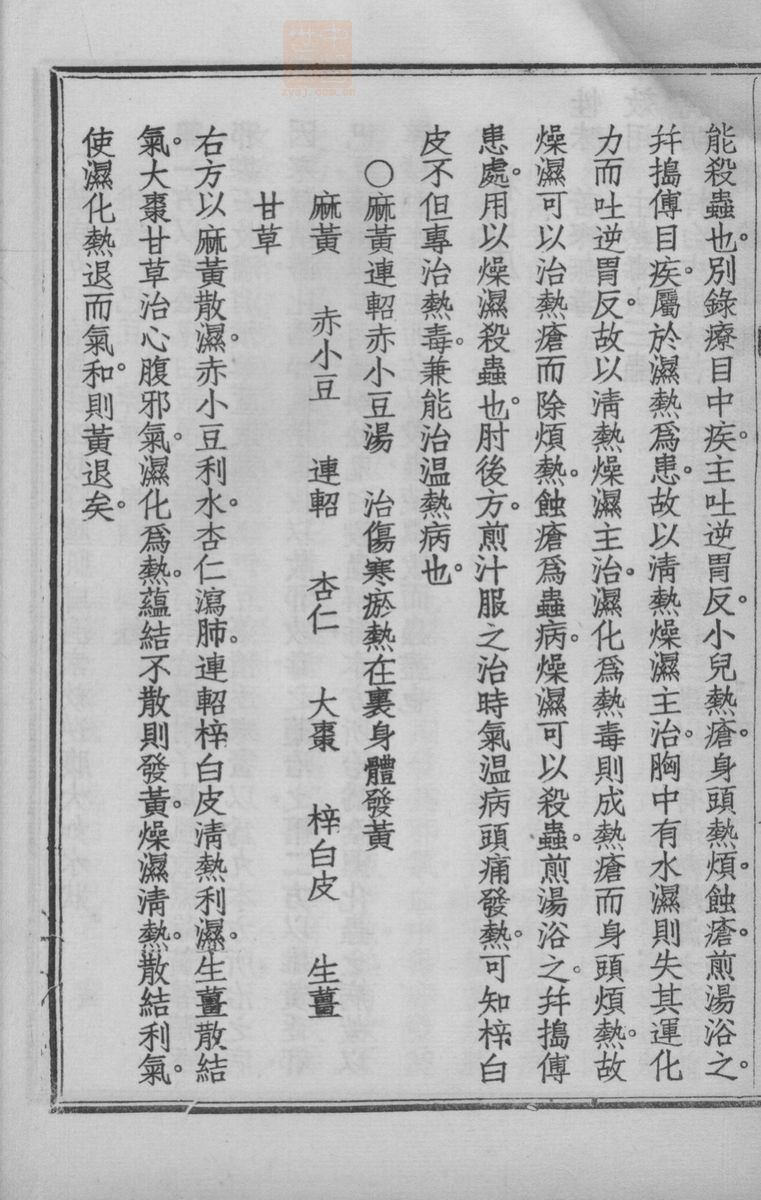 能殺蟲也。別錄療目中疾。主吐逆胃反。小兒熱瘡。身頭熱煩。蝕瘡。煎湯浴之。
幷搗傅目疾。屬於濕熱爲患。故以淸熱燥濕主治。胸中有水濕則失其運化
力而吐逆胃反。故以淸熱燥濕主治。濕化爲熱毒則成熱瘡而身頭煩熱。故
燥濕可以治熱瘡而除煩熱。蝕瘡爲蟲病。燥濕可以殺蟲。煎湯浴之。幷搗傅
患處。用以燥濕殺蟲也。肘後方。煎汁服之治時氣温病頭痛發熱。可知梓白
皮不但專治熱毒。兼能治温熱病也。
〇麻黃連軺赤小豆湯 治傷寒瘀熱在裏身體發黃
麻黃 赤小豆 連軺 杏仁 大棗 梓白皮 生薑
甘草
右方以麻黃散濕。赤小豆利水。杏仁瀉肺。連軺梓白皮淸熱利濕。生薑散結
氣。大棗甘草治心腹邪氣。濕化爲熱。蘊結不散則發黃。燥濕淸熱。散結利氣。
使濕化熱退而氣和。則黃退矣。
zysj.com.cn